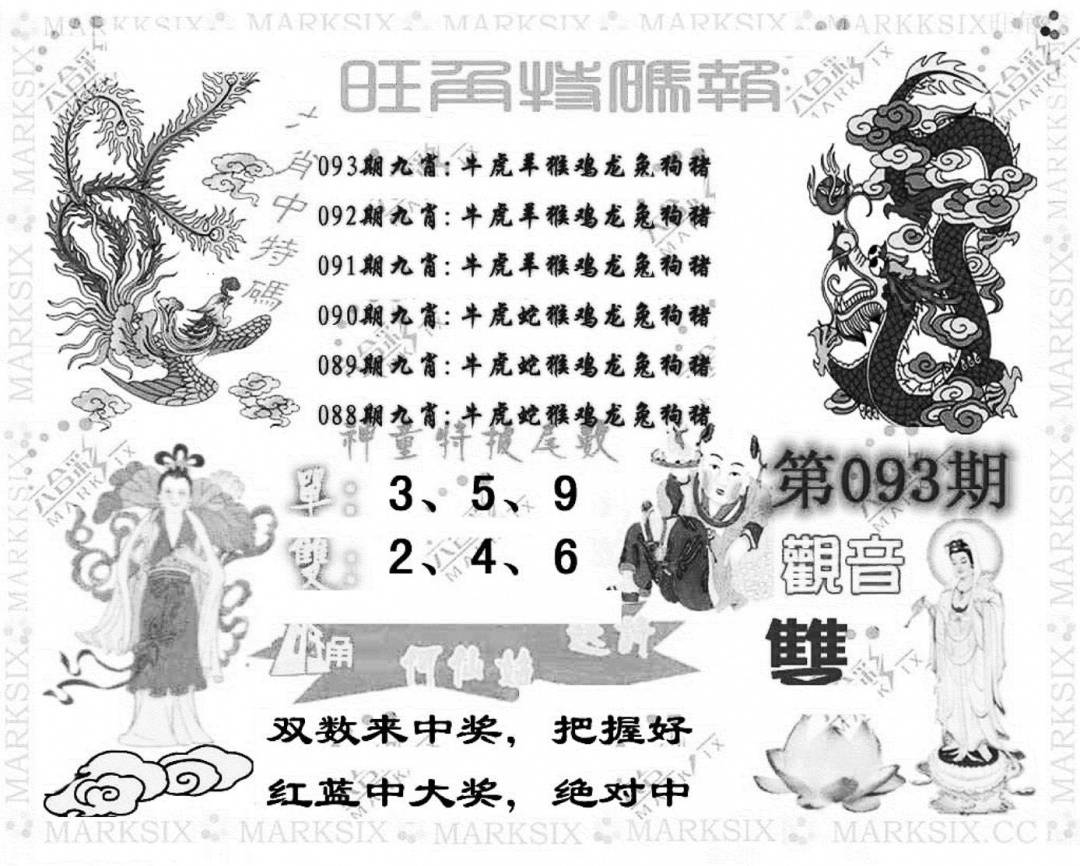 MARKSIX MARKSIX MARKSIX MARKSIX MARKKSIX
旺角特碼報
一肖中特碼
093期九肖：牛虎羊猴鸡龙兔狗猪
092期九肖：牛虎羊猴鸡龙兔狗猪
091期九肖：牛虎羊猴鸡龙兔狗猪
090期九肖：牛虎蛇猴鸡龙兔狗猪
089期九肖：牛虎蛇猴鸡龙兔狗猪
088期九肖：牛虎蛇猴鸡龙兔狗猪
神童特披尾數
單：3、5、9
雙：2、4、6
第093期
觀音
雙
何仙姑
双数来中奖，把握好
红蓝中大奖，绝对中
MARKSIX MARKSIX MARKSIX MARKSIX MARKSIX.CC